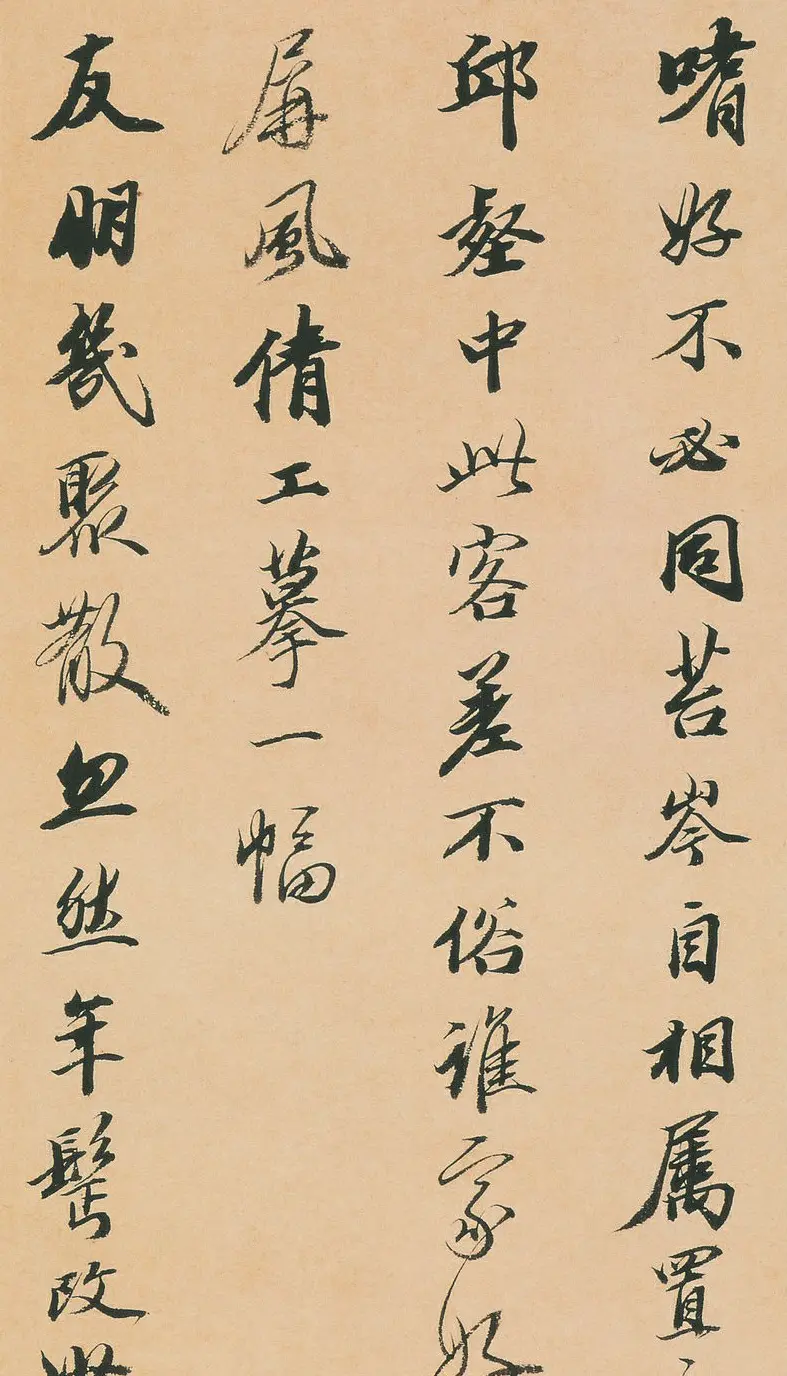 嗜好不必同苔岑自相属置
邱壑中此客差不俗谁家好
屏風倩工摹一幅
友朋幾聚散忽然年髩改